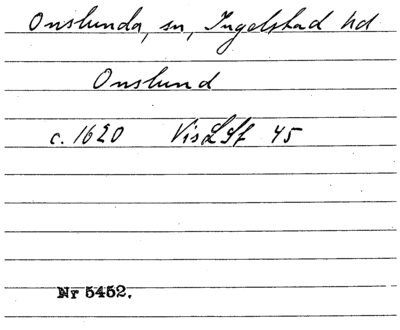 Onslunda, sn, Ingelstad hd
Onslund
c. 1620 Vis LSf 45
Nr 5452.